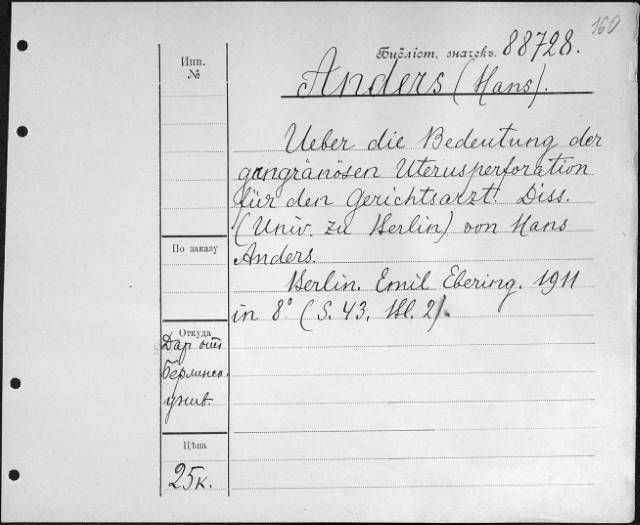 160
Библіот. значекъ. 88728.
Инв.
№
Anders (Hans).
Ueber die Bedeutung der
gangränösen Uterusperforation
für den Gerichtsarzt. Diss.
(Univ. zu Berlin) von Hans
Anders.
Berlin. Emil Ebering. 1911
in 8° (S. 43, Bl. 2).
По заказу
Откуда
Дар от
Берлинск.
унив.
Цѣна
25к.